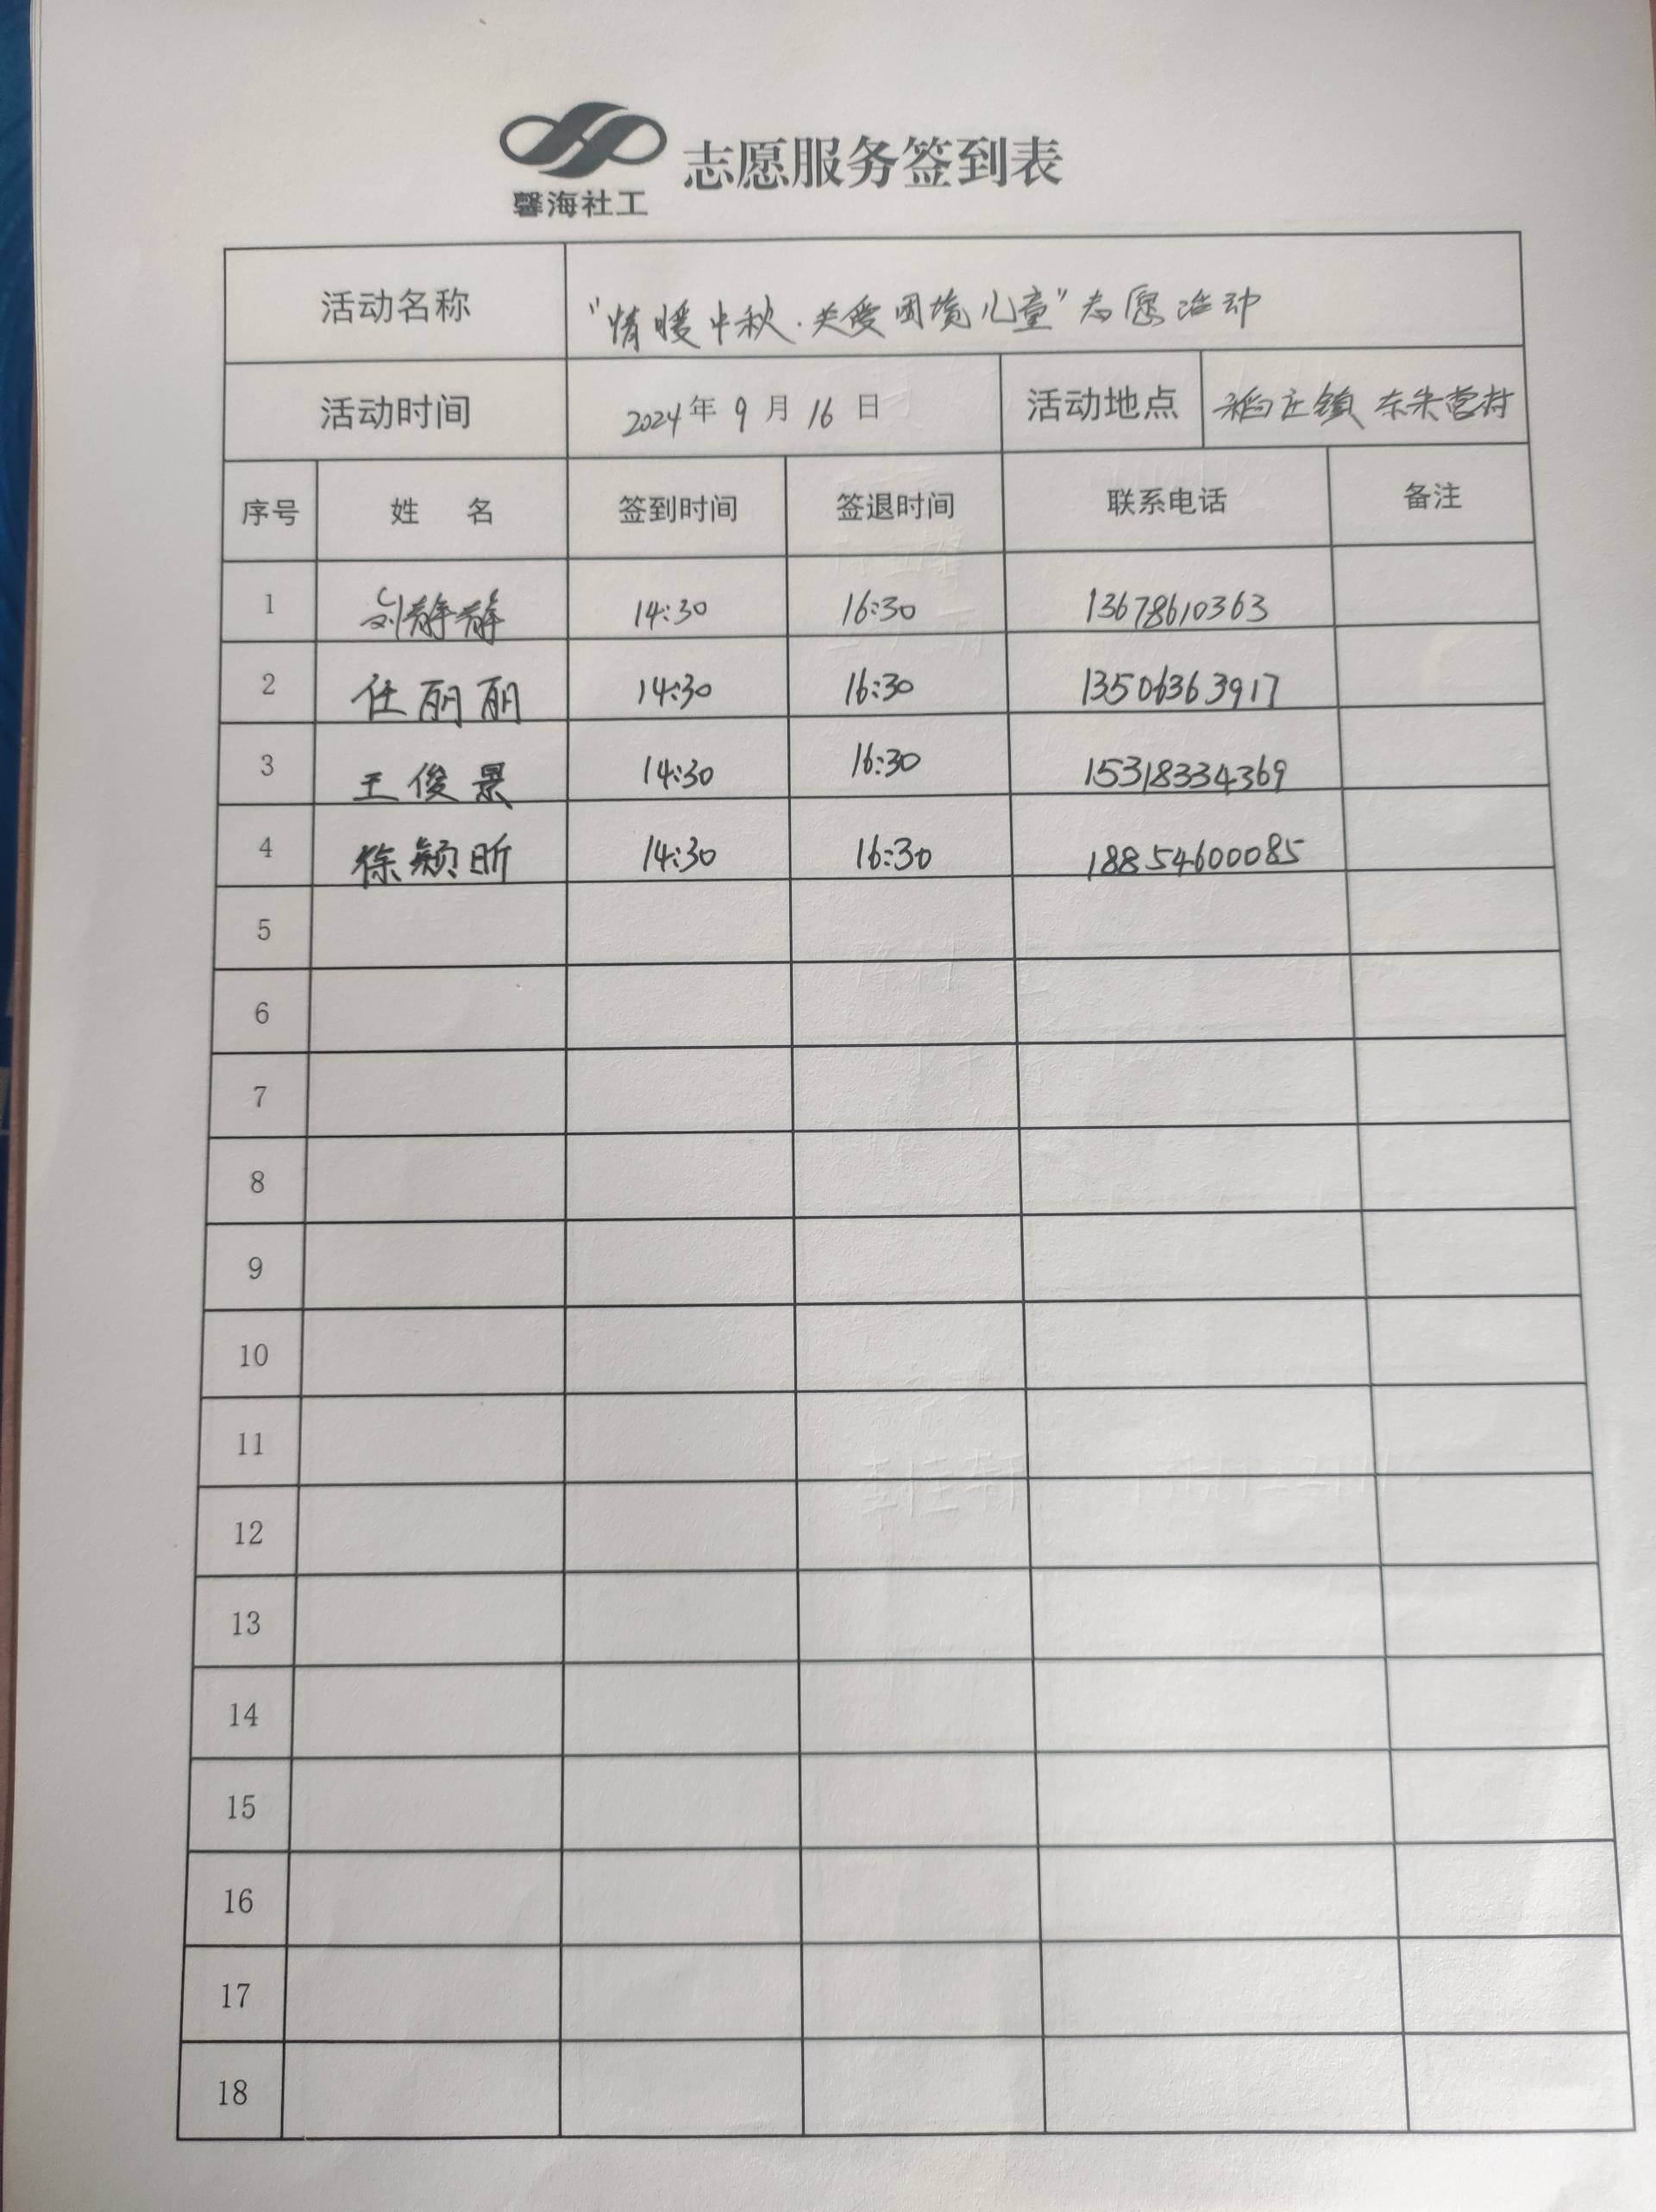 馨海社工 志愿服务签到表
活动名称 "情暖中秋·关爱困境儿童"志愿活动
活动时间 2024年 9 月 16 日 活动地点 稻庄镇 东朱营村
序号 姓 名 签到时间 签退时间 联系电话 备注
1 刘静静 14:30 16:30 13678610363
2 任丽丽 14:30 16:30 13506363917
3 王俊景 14:30 16:30 15318334369
4 徐颖昕 14:30 16:30 18854600085
5
6
7
8
9
10
11
12
13
14
15
16
17
18